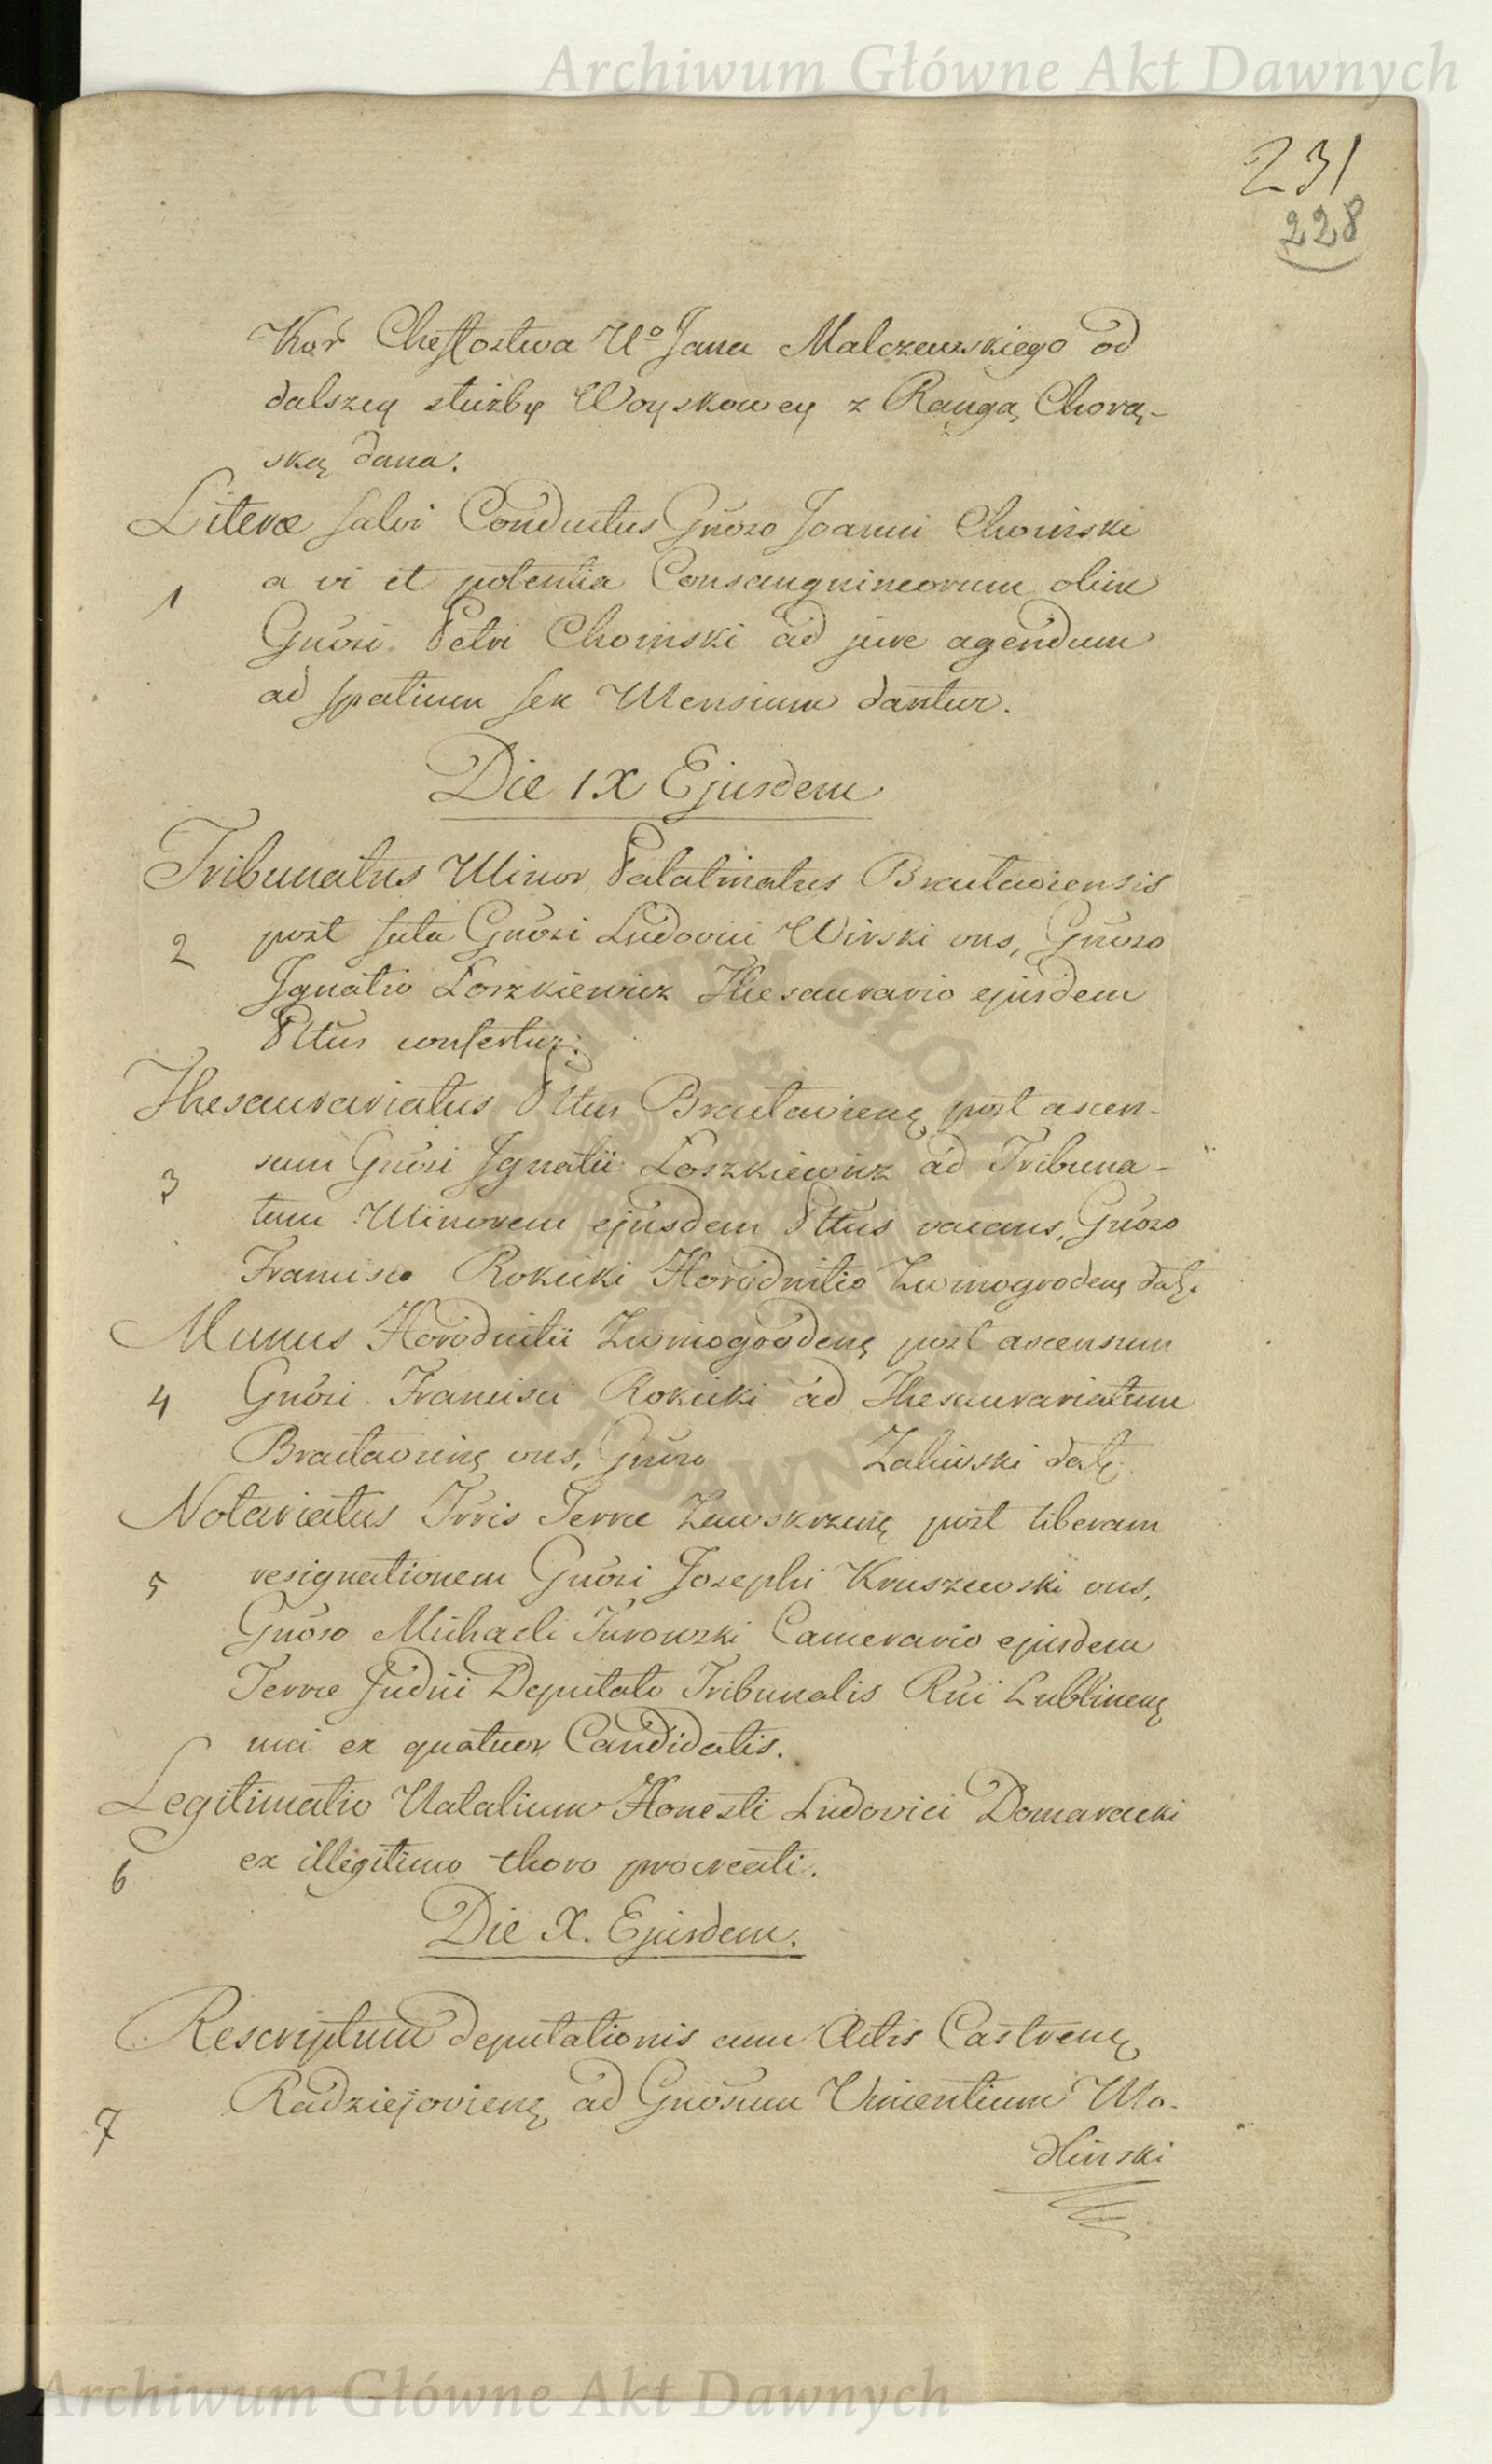 Archiwum Główne Akt Dawnych
231
228
Kor Chefostwa U° Jana Malczewskiego od
dalszey służby Woyskowey z Rangą Chorą-
ską dana.
Literæ salvi Conductus Gnoso Joanni Choinski
1 a vi et potentia Consanguineorum olim
Gnosi Petri Choinski ad jure agendum
ad spatium sex Mensium dantur.
Die IX Ejusdem
Tribunatus Minor Palatinatus Braclaviensis
2 post fata Gnosi Ludovici Wirski vns, Gnoso
Ignatio Loszkiewicz Thesaurario ejusdem
Pttus confertur.
Thesaurariatus Pttus Braclavienę post ascen-
3 sum Gnosi Ignatii Loszkiewicz ad Tribuna-
tum Minorem ejusdem Pttus vacans, Gnoso
Francisco Rokicki Horodnitio Zwinogrodenę datę.
Munus Horodnitii Zwinogrodenę post ascensum
4 Gnosi Francisci Rokicki ad Thesaurariatum
Braclavienę vns, Gnoso Zaliwski datę.
Notariatus Trris Terræ Zawskrzenę post liberam
5 resignationem Gnosi Josephi Kruszewski vns,
Gnoso Michaeli Turowski Camerario ejusdem
Terræ Judici Deputato Tribunalis Rni Lublinenę
uni ex quatuor Candidatis.
Legitimatio Natalium Honesti Ludovici Domaracki
6 ex illegitimo thoro procreati.
Die X. Ejusdem.
Rescriptum deputationis cum Actis Castrenę
7 Radziejovienę ad Gnosum Vincentium Mo-
dlinski
Archiwum Główne Akt Dawnych